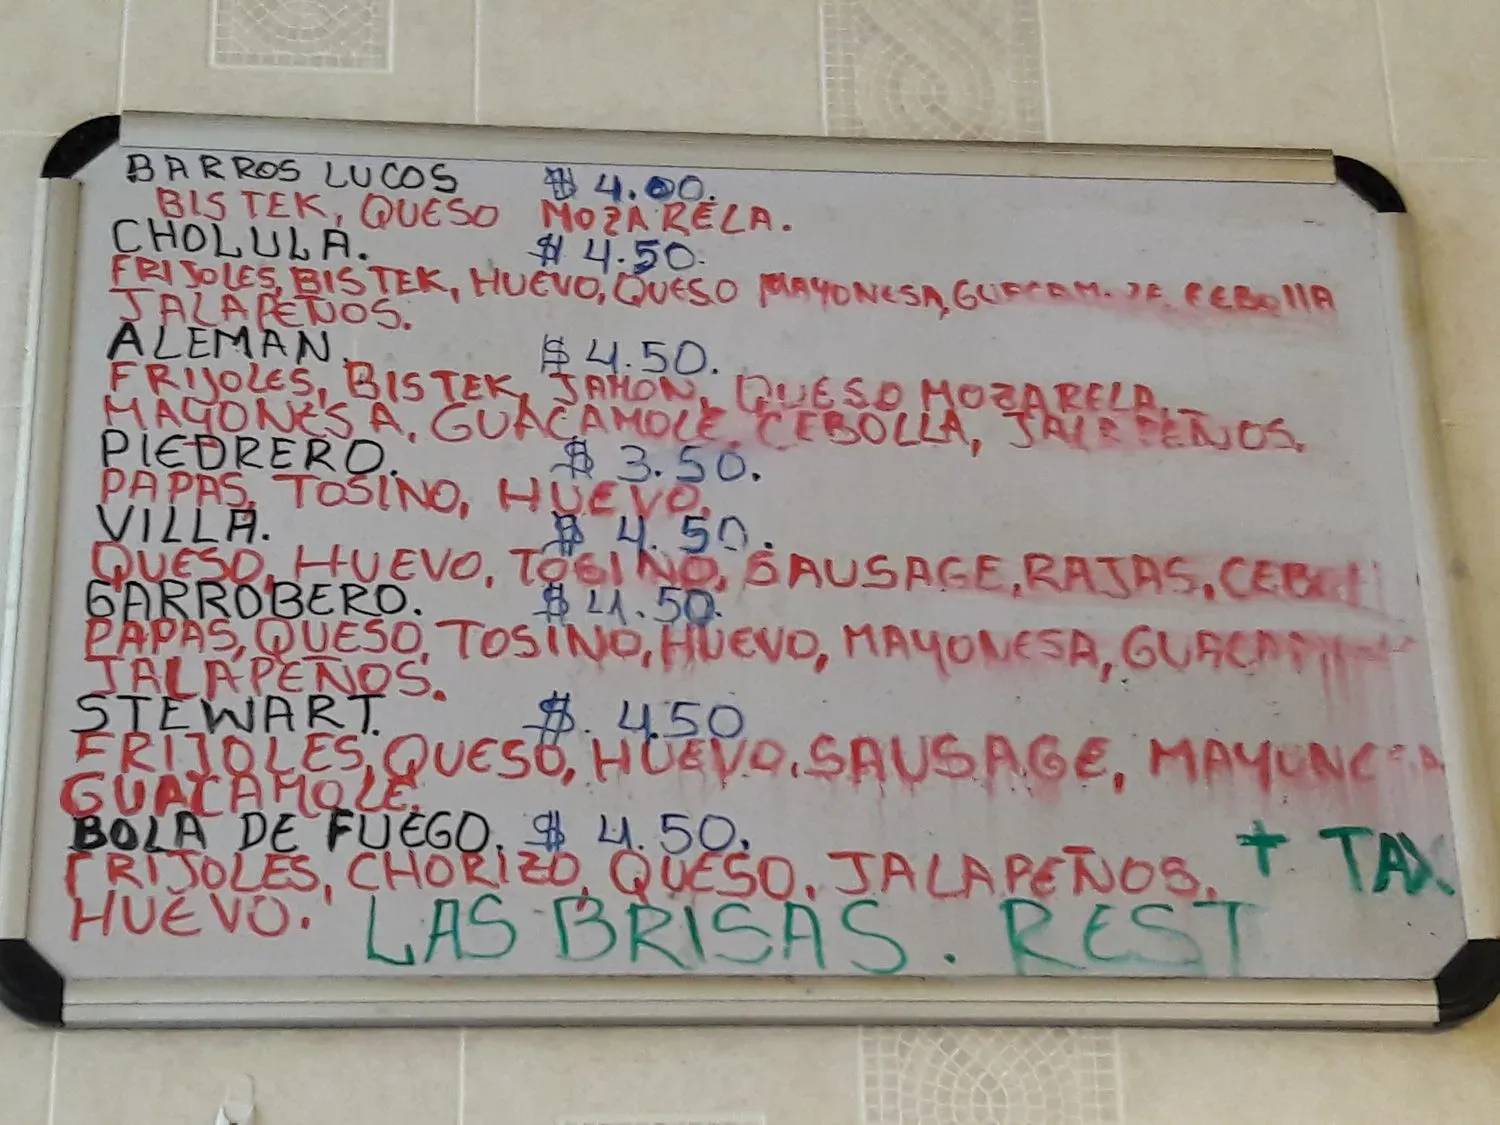 BARROS LUCOS $ 4.00.
BISTEK, QUESO MOZARELA.
CHOLULA. $ 4.50.
FRIJOLES, BISTEK, HUEVO, QUESO MAYONESA, CEBOLLA
JALAPEÑOS.
ALEMAN. $ 4.50.
FRIJOLES, BISTEK, JAMON, QUESO MOZARELA,
MAYONESA, GUACAMOLE, CEBOLLA, JALAPEÑOS.
PIEDRERO. $ 3.50.
PAPAS, TOSINO, HUEVO.
VILLA. $ 4.50.
QUESO, HUEVO, TOSINO, SAUSAGE, RAJAS,
GARROBERO. $ 4.50.
PAPAS, QUESO, TOSINO, HUEVO, MAYONESA,
JALAPEÑOS.
STEWART. $. 4.50
FRIJOLES, QUESO, HUEVO, SAUSAGE, MAYONESA
GUACAMOLE.
BOLA DE FUEGO. $ 4.50.
FRIJOLES, CHORIZO, QUESO, JALAPEÑOS. + TAX
HUEVO. LAS BRISAS. REST